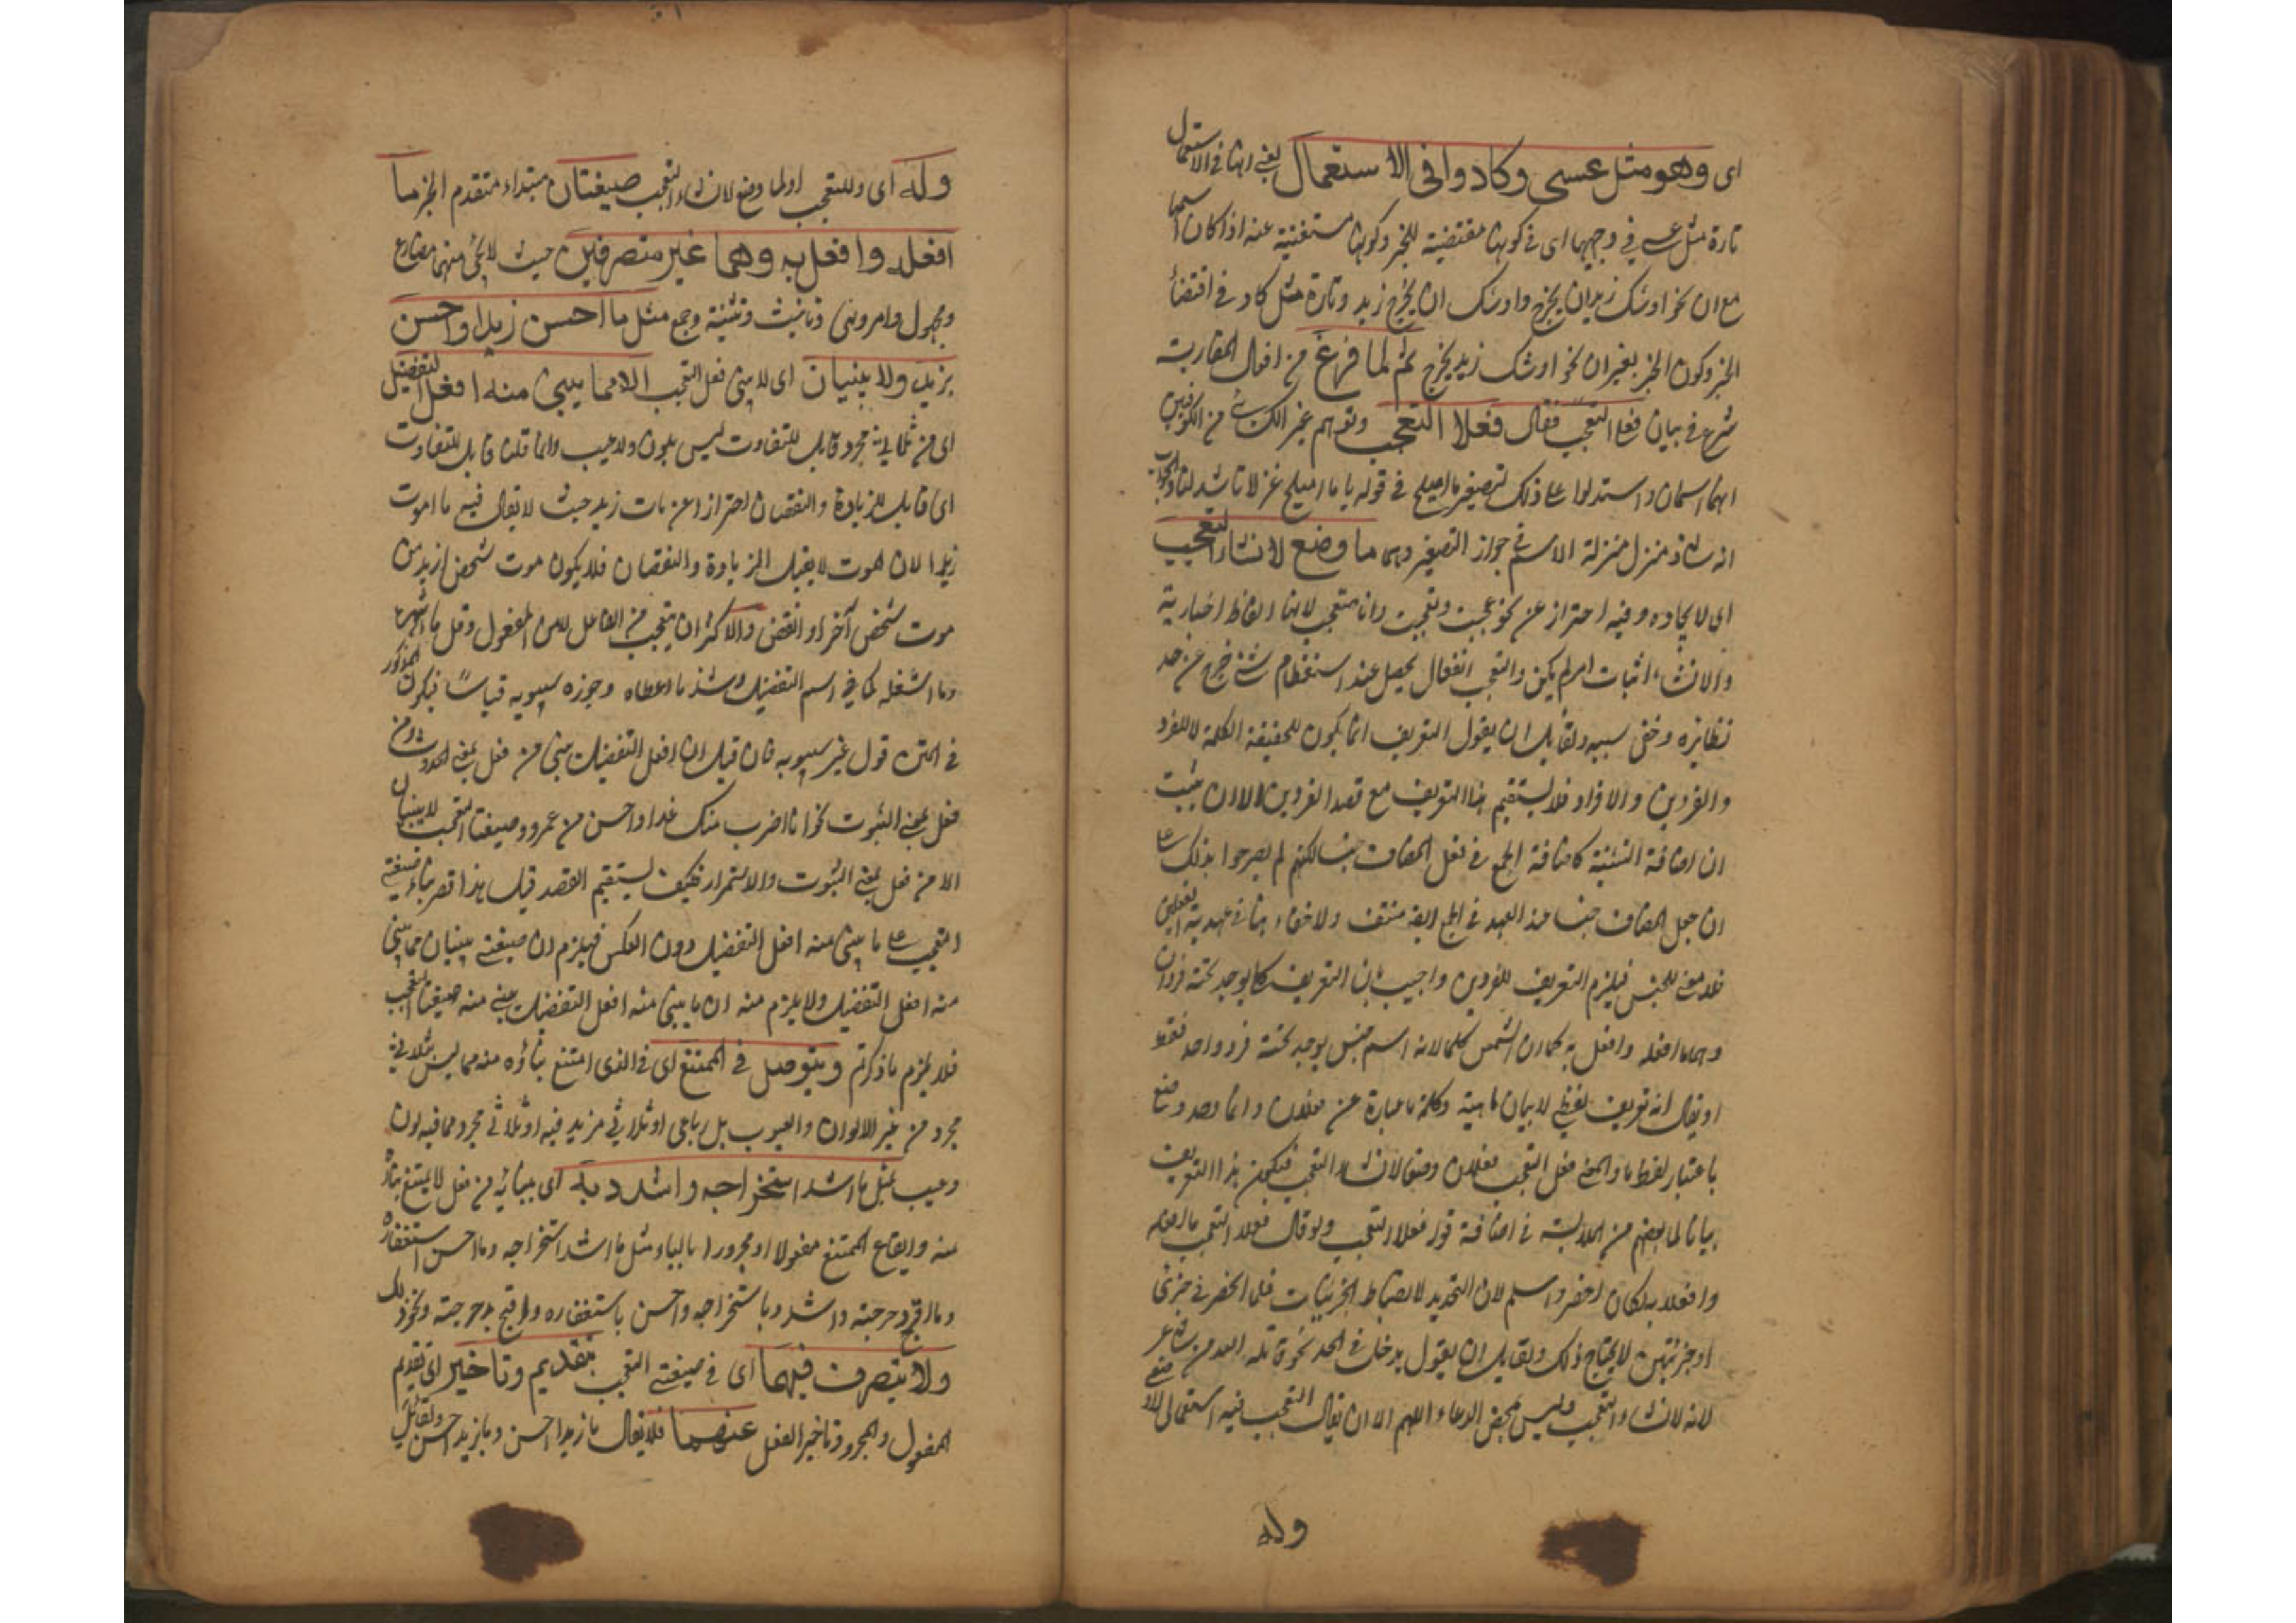 اى وهو مثل عسى وكاد وافى الاستعمال يعنى انها فى الاستعمال
تارة مثل عسى فى وجهيها اى فى كونها مقتضية للخبر وكونها مستغنية عنه اذا كان اسمها
مع ان نحو اوشك زيد ان يخرج واوشك ان يخرج زيد وتارة مثل كاد فى اقتضاء
الخبر وكون الخبر بغير ان نحو اوشك زيد يخرج ثم لما فرغ من افعال المقاربة
شرع فى بيان فعل التعجب فقال فعلا التعجب وتوهم غير الكسائى من الكوفيين
انهما اسمان واستدلوا على ذلك بتصغير ما اميلح فى قوله يا ما اميلح غزلانا شدن لنا والجواب
انه شاذ منزل منزلة الاسم فى جواز التصغير وهما ما وضع لانشاء التعجب
اى لايجاده وفيه احتراز عن نحو عجبت وتعجبت وانا متعجب لانها الفاظ اخبارية
والانشاء اثبات امر لم يكن والتعجب انفعال يحصل عند استعظام شئ خرج عن حد
نظائره وخفى سببه ولقائل ان يقول التعريف انما يكون للحقيقة الكلية لا للفرد
والفردين والافراد فلا يستقيم هذا التعريف مع قصد الفردين الا ان يثبت
ان اضافة التثنية كاضافة الجمع فى نقل المضاف لكنهم لم يصرحوا بذلك على
ان جعل المضاف جنسا عند العهد فى الجمع ايضا منتف ولا خفاء هنا فى عهدية الفعلين
فلا معنى للجنس فيلزم التعريف للفردين واجيب بان التعريف كما يوجد تحته فردان
وهما ما افعله وافعل به كما ان الشمس كلما لانه اسم جنس يوجد تحته فرد واحد فقط
او يقال انه تعريف لفظى لا بيان ماهية وكلمة ما عبارة عن فعلان وانما وحد وضع
باعتبار لفظ ما والمعنى فعل التعجب فعلان وضعا لانشاء التعجب فيكون هذا التعريف
بيانا لما بعضهم من الملابسة فى اضافة قوله فعلا التعجب ولو قال فعلا التعجب ما افعله
وافعل به لكان اخصر واسلم لان التحديد لانضباط الجزئيات فلما انحصر فى جزئى
او جزئيين لا يحتاج ذلك ولقائل ان يقول يدخل فى الحد نحو قاتله الله من شاعر
لانه لانشاء التعجب وليس محض الدعاء اللهم الا ان يقال التعجب فيه استعمالى لا وضعى
وله
وله اى وللتعجب او لما وضع لانشاء التعجب صيغتان مبتداء متقدم الخبر ما
افعله وافعل به وهما غير متصرفين حيث لا يجئ منهما مضارع
ومجهول وامر ونهى وتانيث وتثنية وجمع مثل ما احسن زيدا واحسن
بزيد ولا يبنيان اى لا يبنى فعل التعجب الا مما يبنى منه افعل التفضيل
اى من ثلاثى مجرد قابل للتفاوت ليس بلون ولا عيب وانما قلنا قابل للتفاوت
اى قابل للزيادة والنقصان احترازا عن مات زيد حيث لا يقال فيه ما اموت
زيدا لان الموت لا يقبل الزيادة والنقصان فلا يكون موت شخص ازيد من
موت شخص آخر او انقص والاكثر ان يتعجب من الفاعل لا من المفعول وقل ما اشهره
وما اشغله كما فى اسم التفضيل وشذ ما اعطاه وجوزه سيبويه قياسا فيكون المذكور
فى المتن قول غير سيبويه فان قيل ان افعل التفضيل يبنى من فعل بمعنى الحدوث ومن
فعل بمعنى الثبوت نحو انا اضرب منك غدا واحسن من عمرو وصيغتا التعجب لا يبنيان
الا من فعل بمعنى الثبوت والاستمرار فكيف يستقيم القصد قيل هذا قصر بناء صيغتى
التعجب على ما يبنى منه افعل التفضيل دون العكس فيلزم ان صيغتى يبنيان مما يبنى
منه افعل التفضيل ولا يلزم منه ان ما يبنى منه افعل التفضيل يبنى منه صيغتا التعجب
فلا يلزم ما ذكرتم ويتوصل فى الممتنع اى فى الذى امتنع بناؤه منه مما ليس بثلاثى
مجرد من غير الالوان والعيوب بل رباعى او ثلاثى مزيد فيه او ثلاثى مجرد مما فيه لون
وعيب بمثل ما اشد استخراجه واشدد به اى ببنائه من فعل لا يمتنع بناؤه
منه وايقاع الممتنع مفعولا او مجرورا بالباء مثل ما اشد استخراجه وما احسن استغفاره
وما اقبح دحرجته واشدد باستخراجه واحسن باستغفاره واقبح بدحرجته ونحو ذلك
ولا يتصرف فيهما اى فى صيغتى التعجب بتقديم وتاخير اى تقديم
المفعول والمجرور وتاخير الفعل عنهما فلا يقال ما زيدا احسن وما بزيد احسن ولقائل